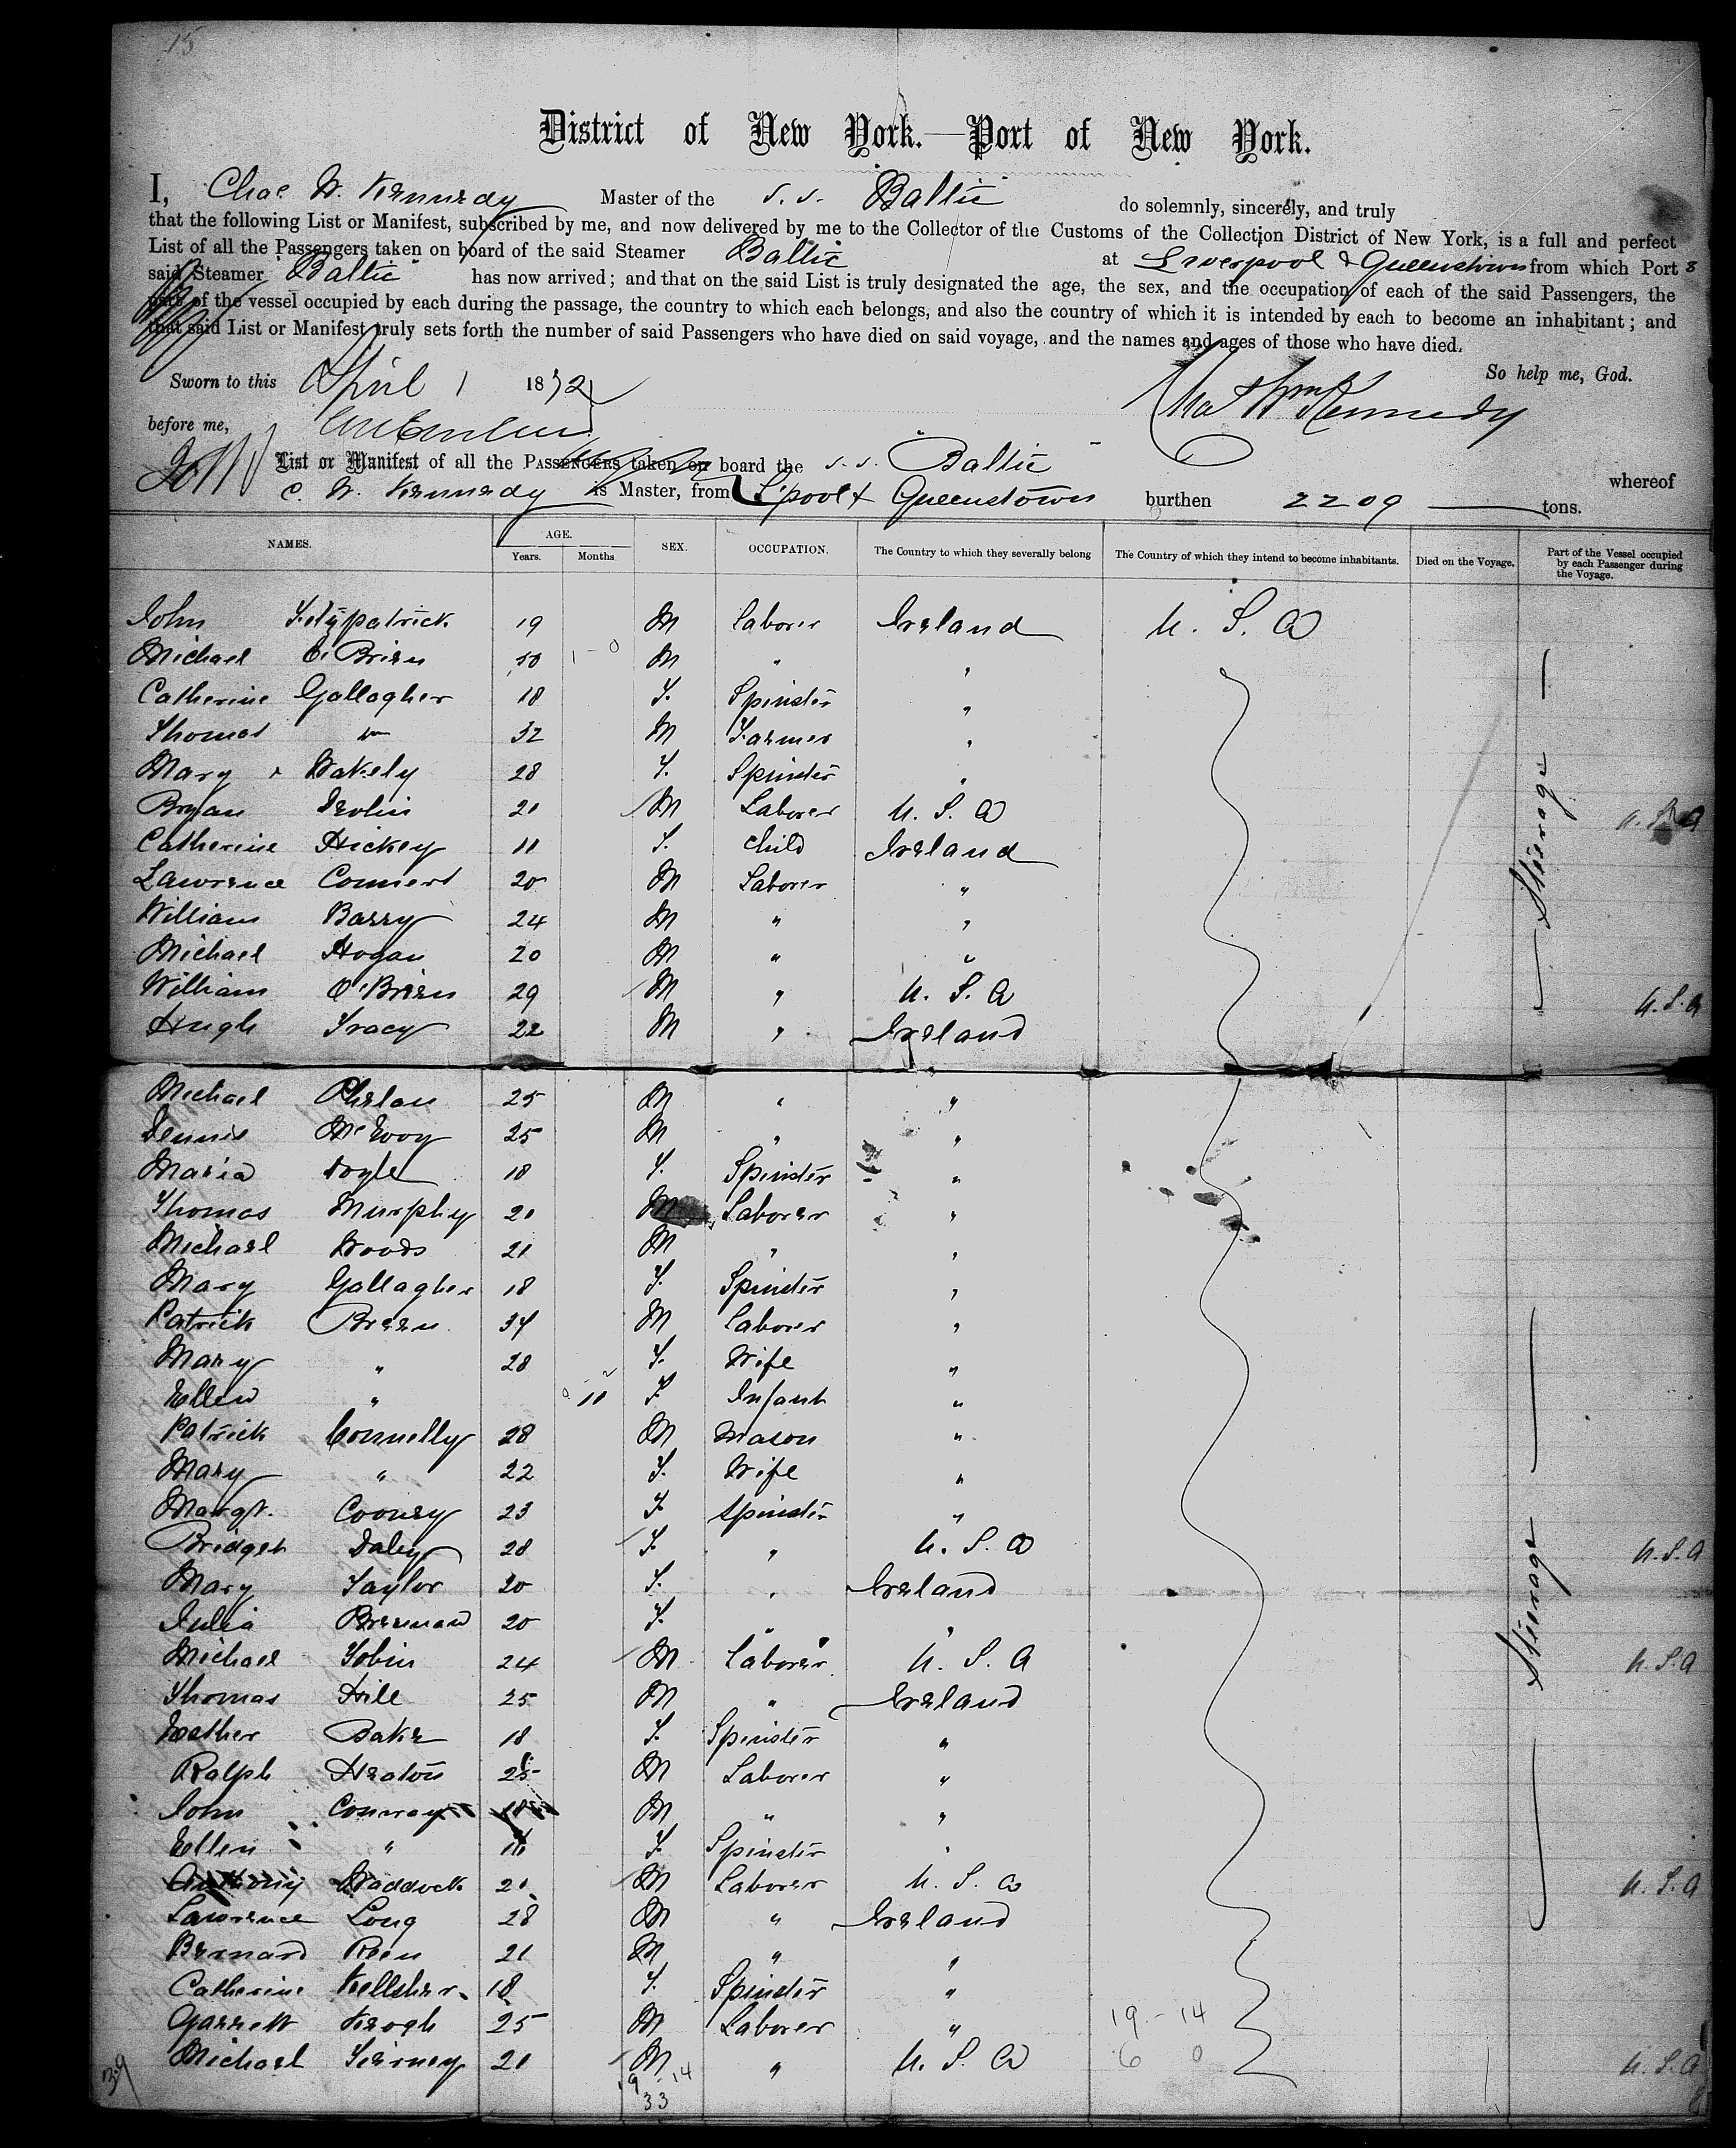 15
District of New York.—Port of New York.
I, Chas. W. Kennedy Master of the S.S. Baltic do solemnly, sincerely, and truly
that the following List or Manifest, subscribed by me, and now delivered by me to the Collector of the Customs of the Collection District of New York, is a full and perfect
List of all the Passengers taken on board of the said Steamer Baltic at Liverpool & Queenstown from which Port
said Steamer Baltic has now arrived; and that on the said List is truly designated the age, the sex, and the occupation of each of the said Passengers, the
part of the vessel occupied by each during the passage, the country to which each belongs, and also the country of which it is intended by each to become an inhabitant; and
that said List or Manifest truly sets forth the number of said Passengers who have died on said voyage, and the names and ages of those who have died.
Sworn to this April 1 1872 So help me, God.
before me, Chas Wm Kennedy
List or Manifest of all the PASSENGERS taken on board the S.S. Baltic whereof
C. W. Kennedy is Master, from L'pool & Queenstown burthen 2209 tons.
NAMES. AGE. Years. Months. SEX. OCCUPATION. The Country to which they severally belong The Country of which they intend to become inhabitants. Died on the Voyage. Part of the Vessel occupied by each Passenger during the Voyage.
John Fitzpatrick 19 M laborer Ireland U. S. A
Michael O'Brien 50 M " "
Catherine Gallagher 18 F. Spinster "
Thomas " 32 M Farmer "
Mary Wakely 28 F. Spinster "
Bryan 21 M Laborer U. S. A U.S.A
Catherine Hickey 11 F. child Ireland
Steerage
Lawrence Conners 20 M Laborer "
William Barry 24 M " "
Michael Hogan 20 M " "
William O'Brien 29 M " U. S. A U.S.A
Hugh Tracy 22 M " Ireland
Michael Phelan 25 M " "
Dennis McEvoy 25 M " "
Maria Doyle 18 F. Spinster "
Thomas Murphy 21 M Laborer "
Michael Woods 21 M " "
Mary Gallagher 18 F. Spinster "
Patrick Breen 34 M laborer "
Mary " 28 F. Wife "
Ellen " 11 F. Infant "
Patrick Connelly 28 M Mason "
Mary " 22 F. Wife "
Margt. Cooney 23 F. Spinster "
Bridget Daley 28 F. " U. S. A U.S.A
Mary Taylor 20 F. " Ireland
Steerage
Julia Brennan 20 F. " "
Michael Tobin 24 M Laborer U. S. A U.S.A
Thomas Hill 25 M " Ireland
Esther Baker 18 F. Spinster "
Ralph Heaton 25 M Laborer "
John Conway 18 M " "
Ellen " F. Spinster "
Anthony Waddock 21 M Laborer U. S. A U.S.A
Lawrence Long 28 M " Ireland
Bernard Roon 21 M " "
Catherine Kelleher 18 F. Spinster "
Garrett Keogh 25 M Laborer " 19 - 14
Michael Tierney 21 M " U. S. A 6 0 U.S.A
39 19 - 14
33